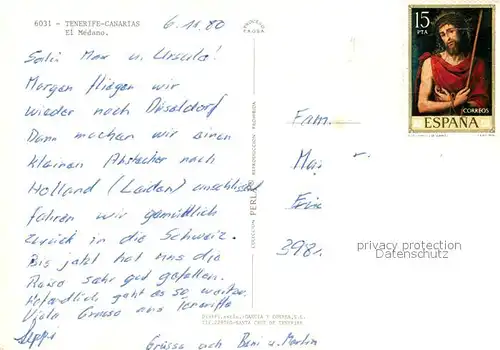 6031 - TENERIFE-CANARIAS
El Médano.
6.11.80
Salü Max u. Ursula!
Morgen fliegen wir
wieder nach Düsseldorf
Dann machen wir einen
kleinen Abstecher nach
Holland (Leiden) anschliessend
fahren wir gemütlich
zurück in die Schweiz.
Bis jetzt hat uns die
Reise sehr gut gefallen.
Hoffentlich geht es so weiter.
Viele Grüsse aus Teneriffa
Seppi
Grüsse auch Beni u. Martin
PERLA
REPRODUCCION PROHIBIDA
15
PTA
CORREOS
ESPAÑA
Fam.
398
privacy protection
Datenschutz